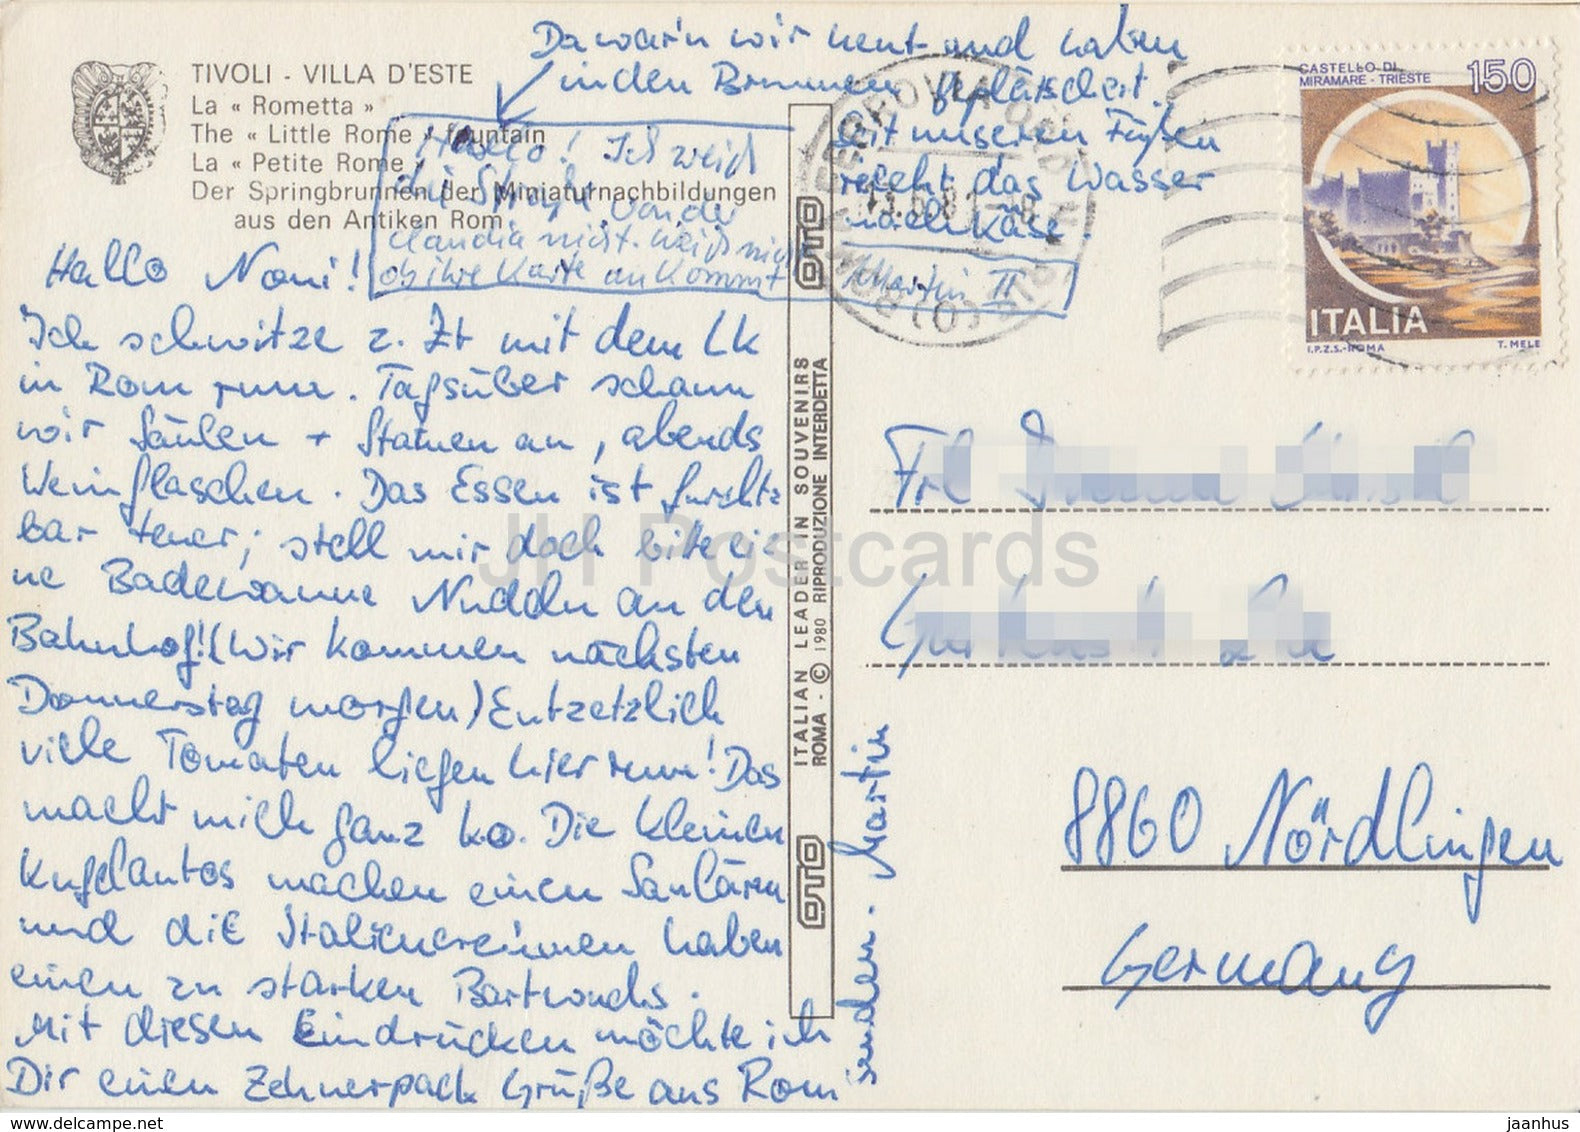 Da war'n wir heut und haben
in den Brunnen geplätschert.
mit unseren Füßen
riecht das Wasser
nach Käse.
TIVOLI - VILLA D'ESTE
La « Rometta »
The « Little Rome » fountain
La « Petite Rome »
Der Springbrunnen der Miniaturnachbildungen
aus den Antiken Rom
Hallo! Ich weiß
die Straße von der
Claudia nicht. Weiß nicht
ob ihre Karte ankommt
Martin II
Hallo Noni!
Ich schwitze z. Zt mit dem LK
in Rom rum. Tagsüber schaun
wir Säulen + Statuen an, abends
Weinflaschen. Das Essen ist furcht=
bar teuer; stell mir doch bitte ei=
ne Badewanne Nudeln an den
Bahnhof! (Wir kommen nächsten
Donnerstag morgen) Entzetzlich
viele Tomaten liegen hier rum! Das
macht mich ganz k.o. Die kleinen
Kugelautos machen einen Saulärm
und die Italienerinnen haben
einen zu starken Bartwuchs.
Mit diesen Eindrücken möchte ich
Dir einen Zehnerpack Grüße aus Rom
senden. Martin
ITALIAN LEADER IN SOUVENIRS
ROMA - © 1980 RIPRODUZIONE INTERDETTA
OTO
OTO
CASTELLO DI
MIRAMARE - TRIESTE
150
ITALIA
I.P.Z.S.-ROMA
T. MELE
Frl
8860 Nördlingen
Germany
JH Postcards
www.delcampe.net
jaanhus